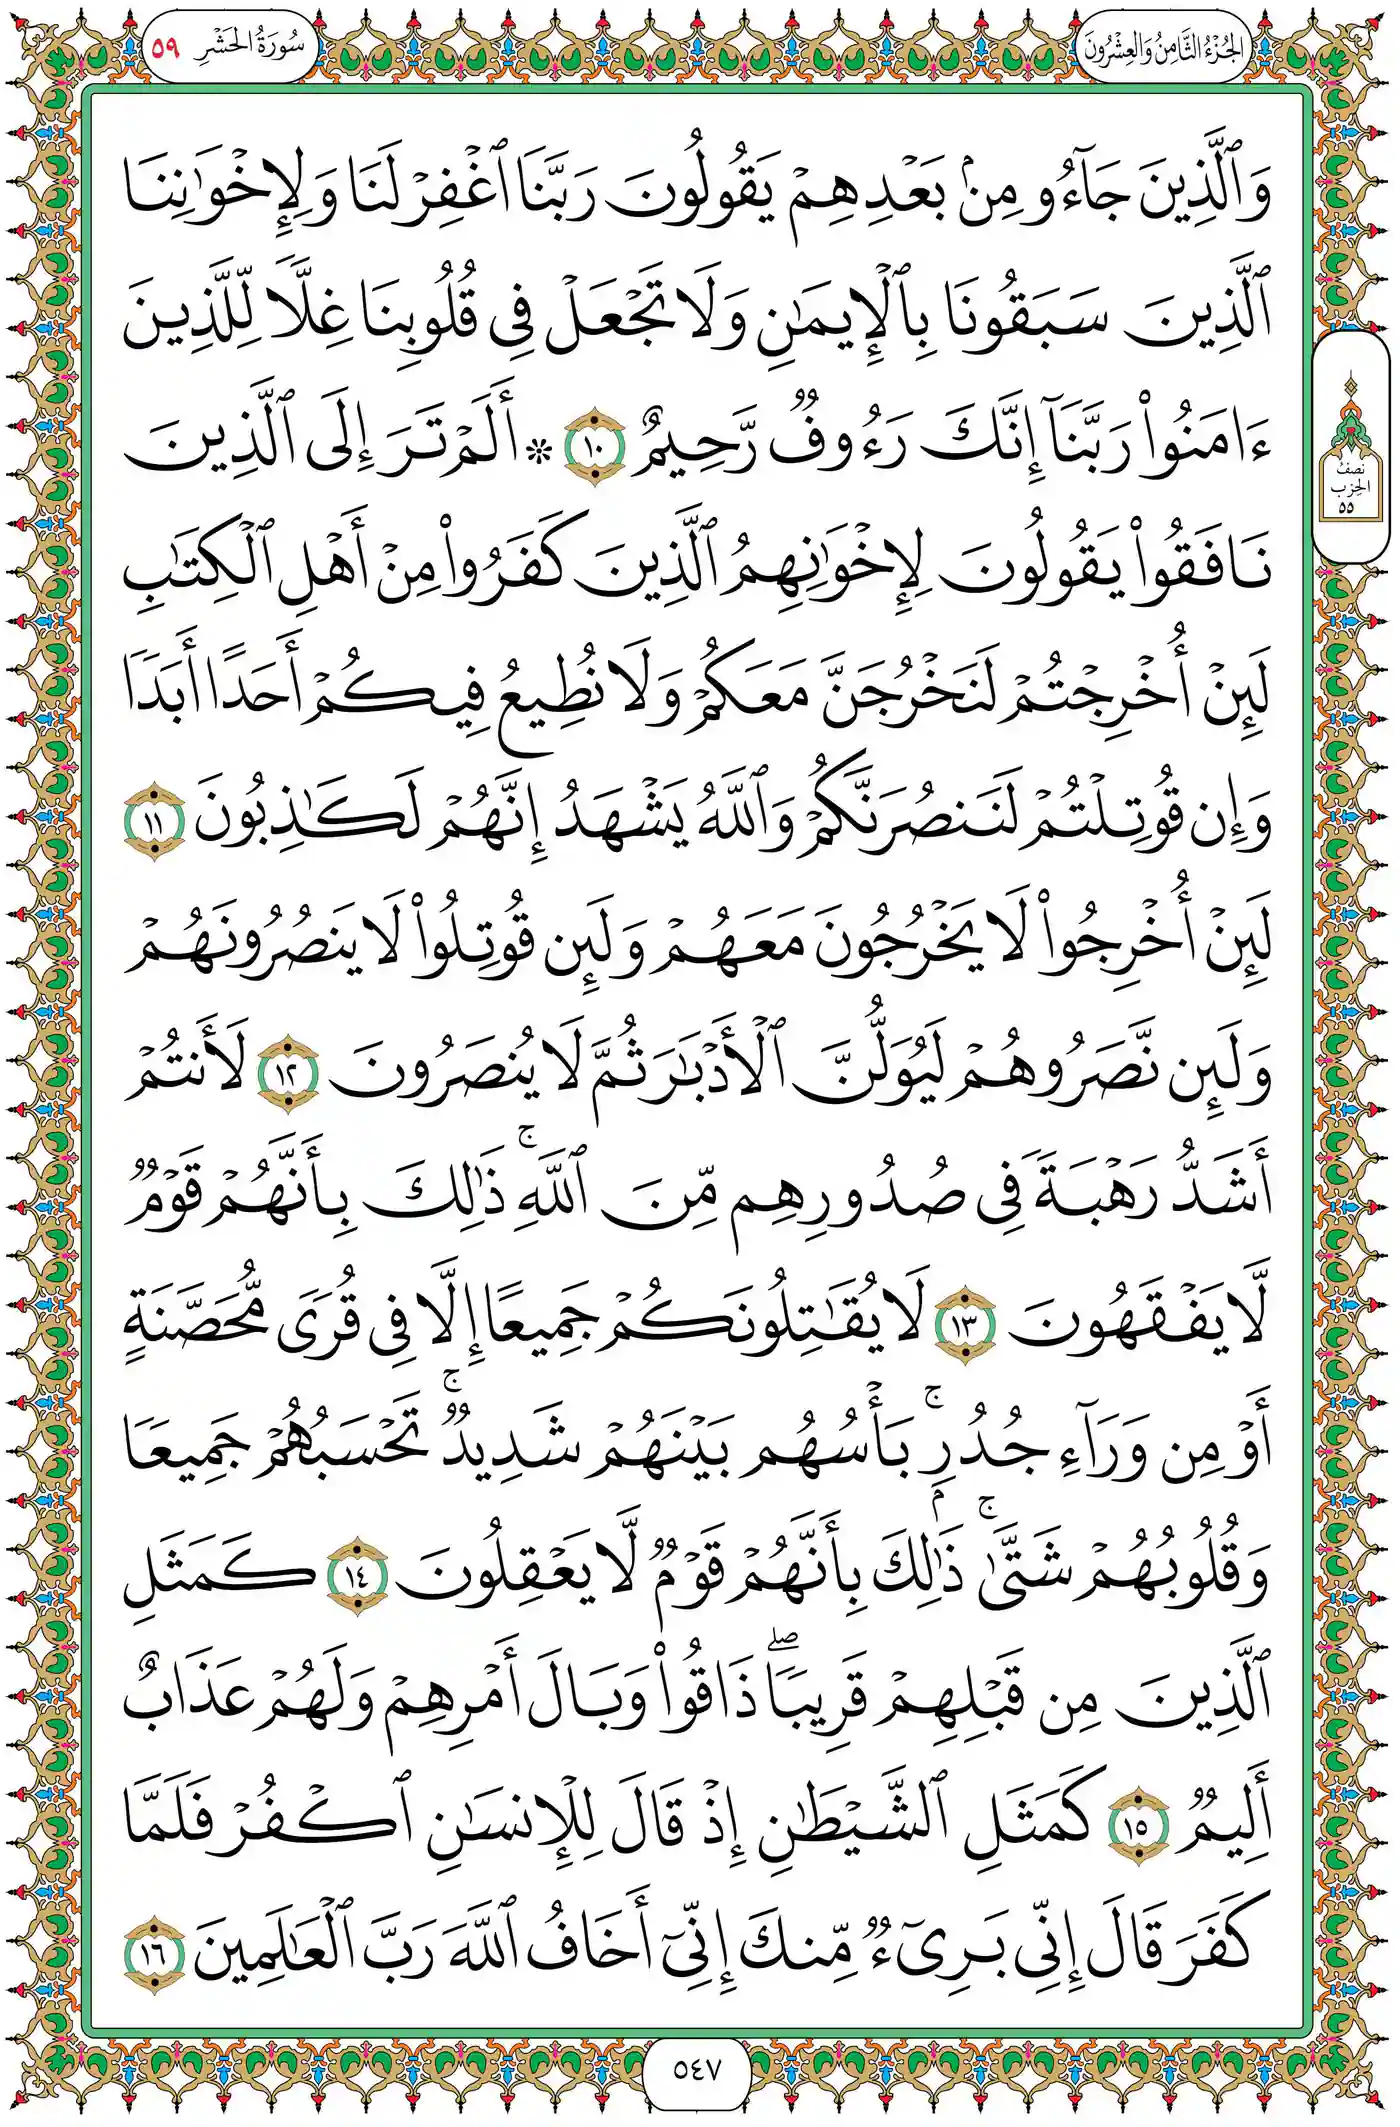 الجُزْءُ الثَّامِنُ وَالعِشْرُونَ
سُورَةُ الحَشْرِ ٥٩
وَٱلَّذِينَ جَآءُو مِنۢ بَعْدِهِمْ يَقُولُونَ رَبَّنَا ٱغْفِرْ لَنَا وَلِإِخْوَٰنِنَا
ٱلَّذِينَ سَبَقُونَا بِٱلْإِيمَٰنِ وَلَا تَجْعَلْ فِى قُلُوبِنَا غِلًّا لِّلَّذِينَ
ءَامَنُوا۟ رَبَّنَآ إِنَّكَ رَءُوفٌ رَّحِيمٌ ١٠ * أَلَمْ تَرَ إِلَى ٱلَّذِينَ
نَافَقُوا۟ يَقُولُونَ لِإِخْوَٰنِهِمُ ٱلَّذِينَ كَفَرُوا۟ مِنْ أَهْلِ ٱلْكِتَٰبِ
لَئِنْ أُخْرِجْتُمْ لَنَخْرُجَنَّ مَعَكُمْ وَلَا نُطِيعُ فِيكُمْ أَحَدًا أَبَدًا
وَإِن قُوتِلْتُمْ لَنَنصُرَنَّكُمْ وَٱللَّهُ يَشْهَدُ إِنَّهُمْ لَكَٰذِبُونَ ١١
لَئِنْ أُخْرِجُوا۟ لَا يَخْرُجُونَ مَعَهُمْ وَلَئِن قُوتِلُوا۟ لَا يَنصُرُونَهُمْ
وَلَئِن نَّصَرُوهُمْ لَيُوَلُّنَّ ٱلْأَدْبَٰرَ ثُمَّ لَا يُنصَرُونَ ١٢ لَأَنتُمْ
أَشَدُّ رَهْبَةً فِى صُدُورِهِم مِّنَ ٱللَّهِ ۚ ذَٰلِكَ بِأَنَّهُمْ قَوْمٌ
لَّا يَفْقَهُونَ ١٣ لَا يُقَٰتِلُونَكُمْ جَمِيعًا إِلَّا فِى قُرًى مُّحَصَّنَةٍ
أَوْ مِن وَرَآءِ جُدُرٍۭ ۚ بَأْسُهُم بَيْنَهُمْ شَدِيدٌ ۚ تَحْسَبُهُمْ جَمِيعًا
وَقُلُوبُهُمْ شَتَّىٰ ۚ ذَٰلِكَ بِأَنَّهُمْ قَوْمٌ لَّا يَعْقِلُونَ ١٤ كَمَثَلِ
ٱلَّذِينَ مِن قَبْلِهِمْ قَرِيبًا ۖ ذَاقُوا۟ وَبَالَ أَمْرِهِمْ وَلَهُمْ عَذَابٌ
أَلِيمٌ ١٥ كَمَثَلِ ٱلشَّيْطَٰنِ إِذْ قَالَ لِلْإِنسَٰنِ ٱكْفُرْ فَلَمَّا
كَفَرَ قَالَ إِنِّى بَرِىٓءٌ مِّنكَ إِنِّىٓ أَخَافُ ٱللَّهَ رَبَّ ٱلْعَٰلَمِينَ ١٦
نصفُ
الحِزب
٥٥
٥٤٧